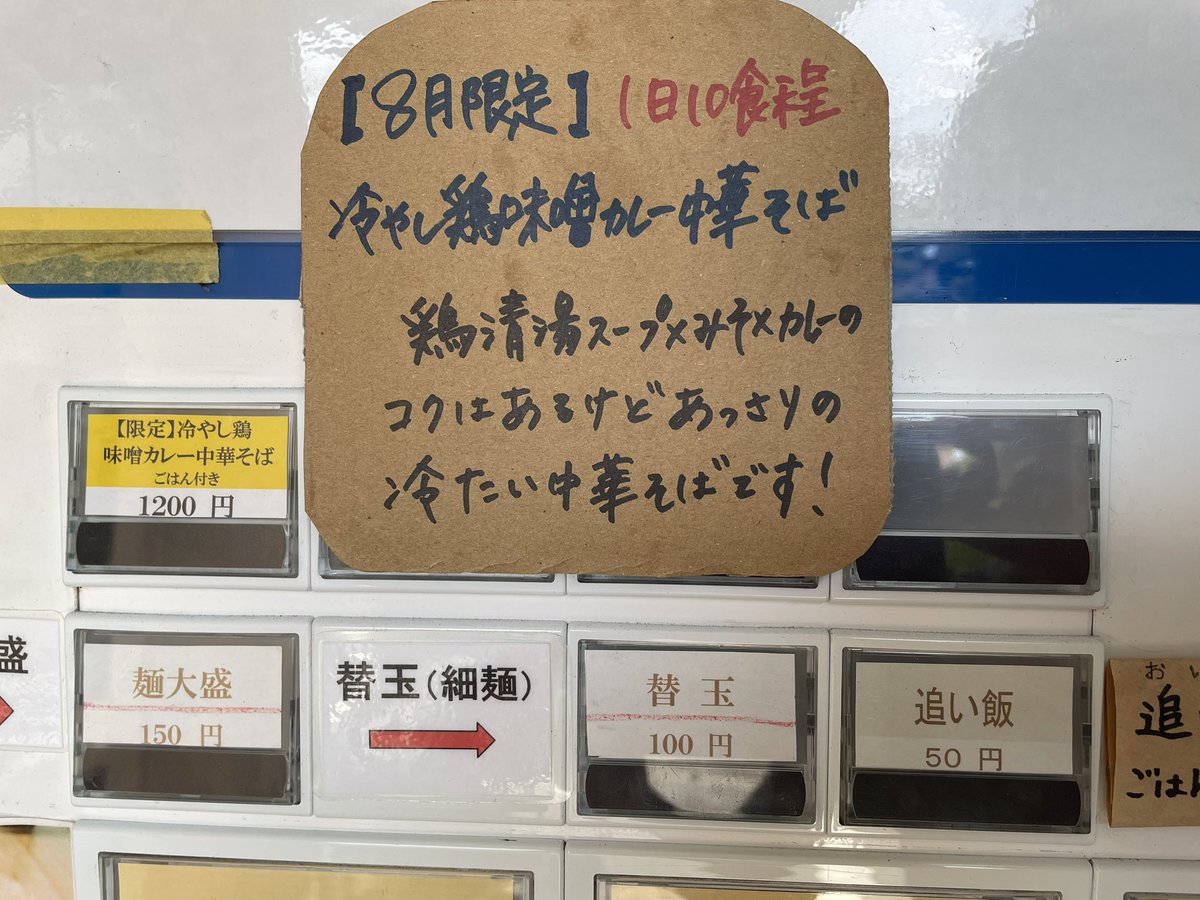 【8月限定】1日10食程
冷やし鶏味噌カレー中華そば
鶏清湯スープ×みそ×カレーの
コクはあるけどあっさりの
冷たい中華そばです!
【限定】冷やし鶏
味噌カレー中華そば
ごはん付き
1200 円
盛
麺大盛
150 円
替玉(細麺)
替 玉
100 円
追い飯
50 円
おい
追
ごはん